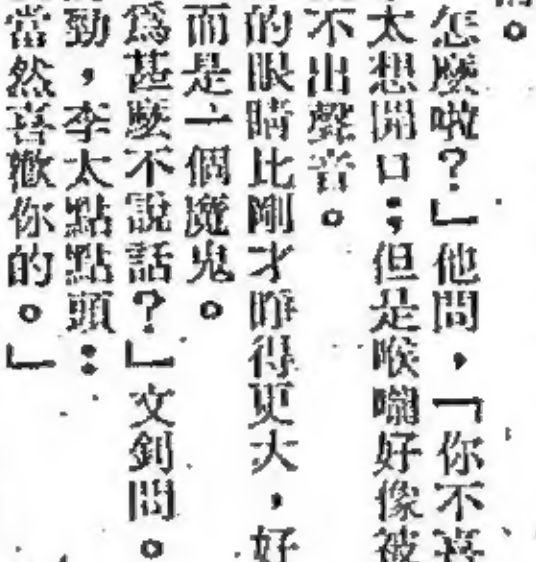 。
怎麼啦？」他問，「你不喜
太想開口；但是喉嚨好像被
不出聲音。
的眼睛比剛才睜得更大，好
而是一個魔鬼。
爲甚麼不說話？」文釗問。
勁，李太點點頭：
當然喜歡你的。」